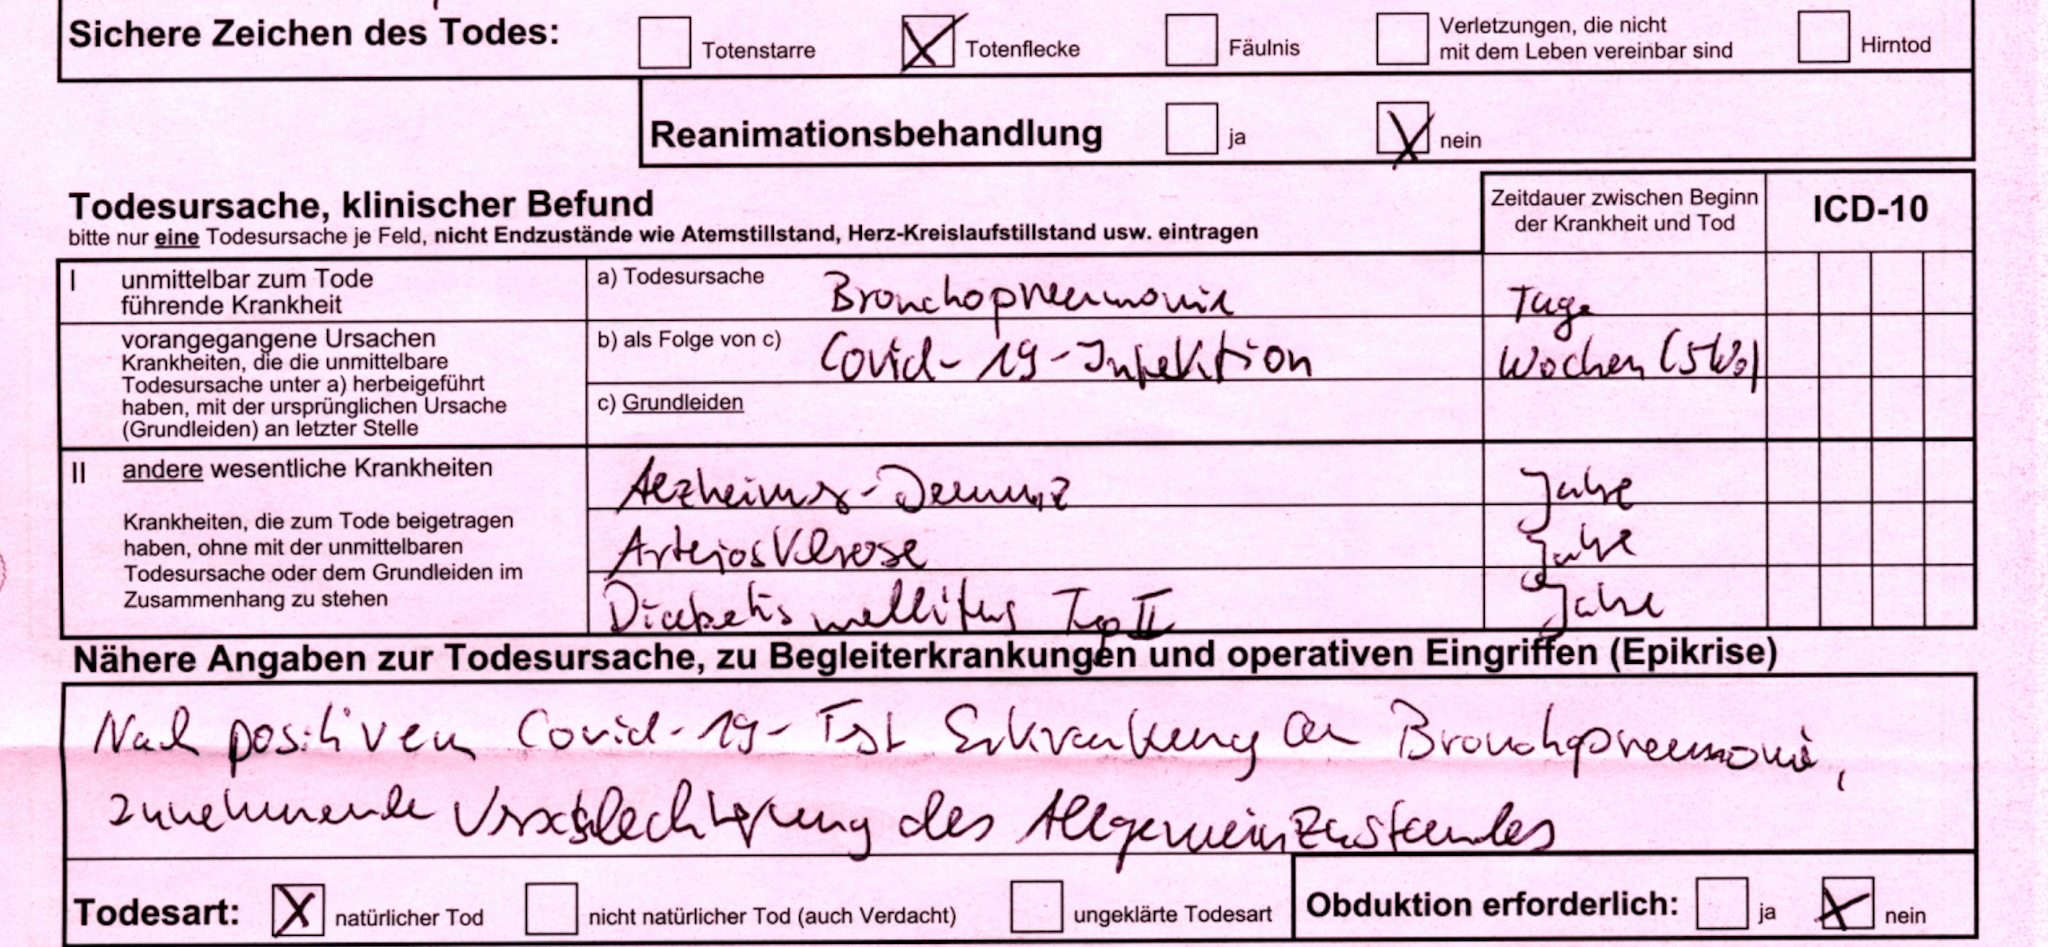 Sichere Zeichen des Todes: Totenstarre Totenflecke Fäulnis Verletzungen, die nicht mit dem Leben vereinbar sind Hirntod
Reanimationsbehandlung ja nein
Todesursache, klinischer Befund
bitte nur eine Todesursache je Feld, nicht Endzustände wie Atemstillstand, Herz-Kreislaufstillstand usw. eintragen
Zeitdauer zwischen Beginn
der Krankheit und Tod
ICD-10
I unmittelbar zum Tode
führende Krankheit
a) Todesursache Bronchopneumonie Tage
vorangegangene Ursachen
Krankheiten, die die unmittelbare
Todesursache unter a) herbeigeführt
haben, mit der ursprünglichen Ursache
(Grundleiden) an letzter Stelle
b) als Folge von c) Covid-19-Infektion Wochen (5Wo)
c) Grundleiden
II andere wesentliche Krankheiten
Krankheiten, die zum Tode beigetragen
haben, ohne mit der unmittelbaren
Todesursache oder dem Grundleiden im
Zusammenhang zu stehen
Alzheimer-Demenz Jahre
Arteriosklerose Jahre
Diabetis mellitus Typ II Jahre
Nähere Angaben zur Todesursache, zu Begleiterkrankungen und operativen Eingriffen (Epikrise)
Nach positivem Covid-19-Test Erkrankung an Bronchopneumonie,
zunehmende Verschlechterung des Allgemeinzustandes
Todesart: natürlicher Tod nicht natürlicher Tod (auch Verdacht) ungeklärte Todesart Obduktion erforderlich: ja nein